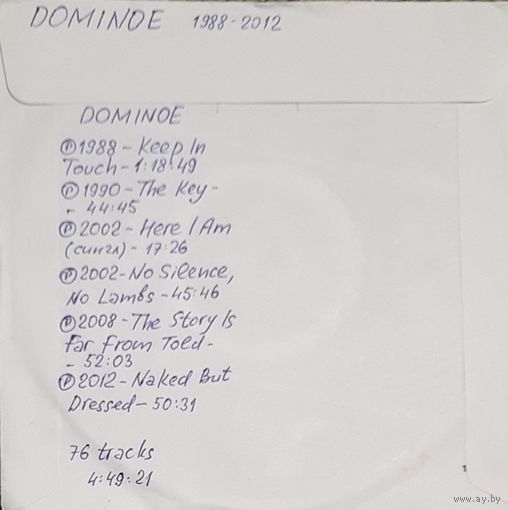 DOMINOE 1988-2012
DOMINOE
℗1988-Keep In
Touch-1:18:49
℗1990-The Key-
- 44:45
℗2002-Here I Am
(сингл)-17:26
℗2002-No Silence,
No Lambs-45:46
℗2008-The Story Is
Far From Told-
- 52:03
℗2012-Naked But
Dressed-50:31
76 tracks
4:49:21
www.ay.by